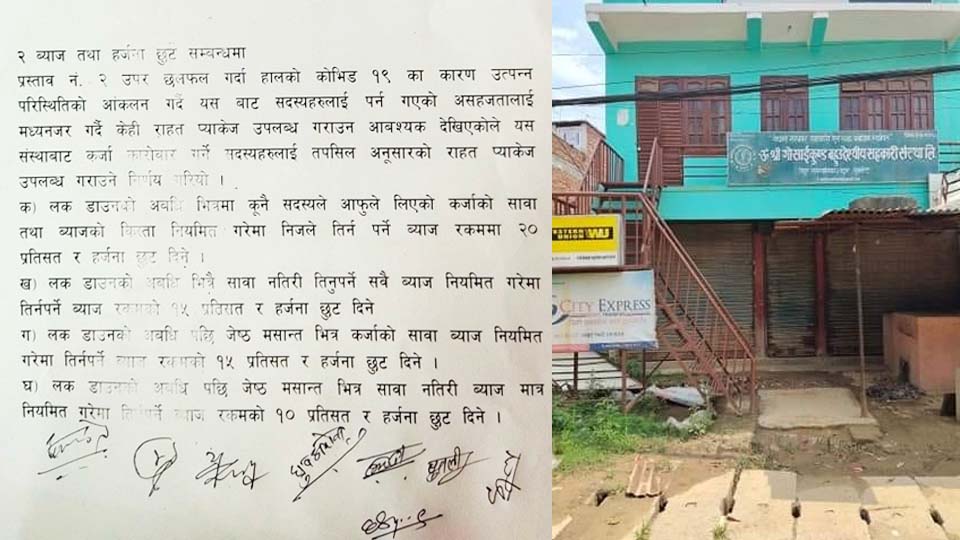 २ ब्याज तथा हर्जना छुट सम्बन्धमा
प्रस्ताव नं. २ उपर छलफल गर्दा हालको कोभिड १९ का कारण उत्पन्न
परिस्थितिको आंकलन गर्दै यस बाट सदस्यहरुलाई पर्न गएको असहजतालाई
मध्यनजर गर्दै केही राहत प्याकेज उपलब्ध गराउन आवश्यक देखिएकोले यस
संस्थाबाट कर्जा कारोबार गर्ने सदस्यहरुलाई तपसिल अनुसारको राहत प्याकेज
उपलब्ध गराउने निर्णय गरियो ।
क) लक डाउनको अबधि भित्रमा कूनै सदस्यले आफुले लिएको कर्जाको सावा
तथा ब्याजको किस्ता नियमित गरेमा निजले तिर्न पर्ने ब्याज रकममा २०
प्रतिसत र हर्जना छुट दिने ।
ख) लक डाउनको अबधि भित्रै सावा नतिरी तिनुपर्ने सवै ब्याज नियमित गरेमा
तिर्नपर्ने ब्याज रकमको १५ प्रतिसत र हर्जना छुट दिने
ग) लक डाउनको अबधि पछि जेष्ठ मसान्त भित्र कर्जाको सावा ब्याज नियमित
गरेमा तिर्नपर्ने ब्याज रकमको १५ प्रतिसत र हर्जना छुट दिने ।
घ) लक डाउनको अबधि पछि जेष्ठ मसान्त भित्र सावा नतिरी ब्याज मात्र
नियमित गरेमा तिर्नपर्ने ब्याज रकमको १० प्रतिसत र हर्जना छुट दिने ।
घुतली
श्री गोसाईंकुण्ड बहुउद्देश्यीय सहकारी संस्था लि
WESTERN UNION WU
CITY EXPRESS